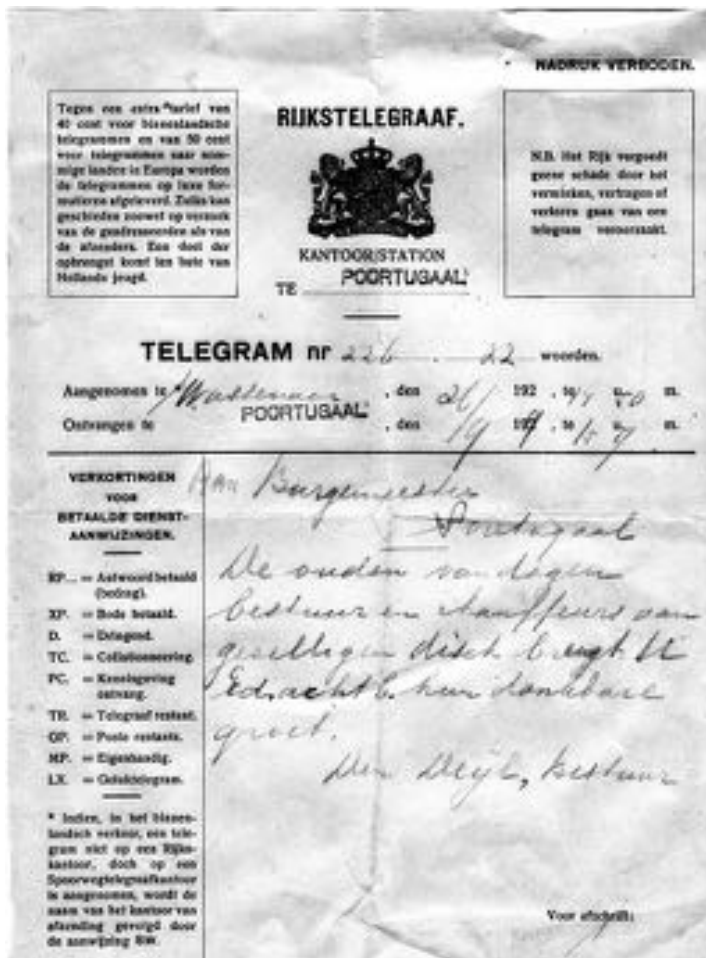 NADRUK VERBODEN.
Tegen een extra tarief van
40 cent voor binnenlandsche
telegrammen en van 50 cent
voor telegrammen naar som-
mige landen in Europa worden
de telegrammen op luxe for-
mulieren afgeleverd. Zulks kan
geschieden zoowel op verzoek
van de geadresseerden als van
de afzenders. Een deel der
opbrengst komt ten bate van
Hollands jeugd.
RIJKSTELEGRAAF.
KANTOOR/STATION
TE POORTUGAAL
N.B. Het Rijk vergoedt
geene schade door het
verminken, vertragen of
verloren gaan van een
telegram veroorzaakt.
TELEGRAM nr 226 . 22 woorden.
Aangenomen te Wassenaar , den 26/ 192 , te u. m.
Ontvangen te POORTUGAAL , den 192 , te u. m.
VERKORTINGEN
VOOR
BETAALDE DIENST-
AANWIJZINGEN.
RP... = Antwoord betaald
(bedrag).
XP. = Bode betaald.
D. = Dringend.
TC. = Collationneering.
PC. = Kennisgeving
ontvang.
TR. = Telegraaf restant.
GP. = Poste restante.
MP. = Eigenhandig.
LX. = Gelukstelegram.
* Indien, in het binnen-
landsch verkeer, een tele-
gram niet op een Rijks-
kantoor, doch op een
Spoorwegtelegraafkantoor
is aangenomen, wordt de
naam van het kantoor van
afzending gevolgd door
de aanwijzing SW.
Aan Burgemeester
Poortugaal
De ouden van dagen
bestuur en chauffeurs aan
gezelligen disch brengt U
Ed.achtb. hun dankbare
groet.
Den Deijl, Bestuur
Voor afschrift: